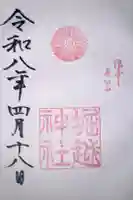 令和八年四月十八日
堀越
神社